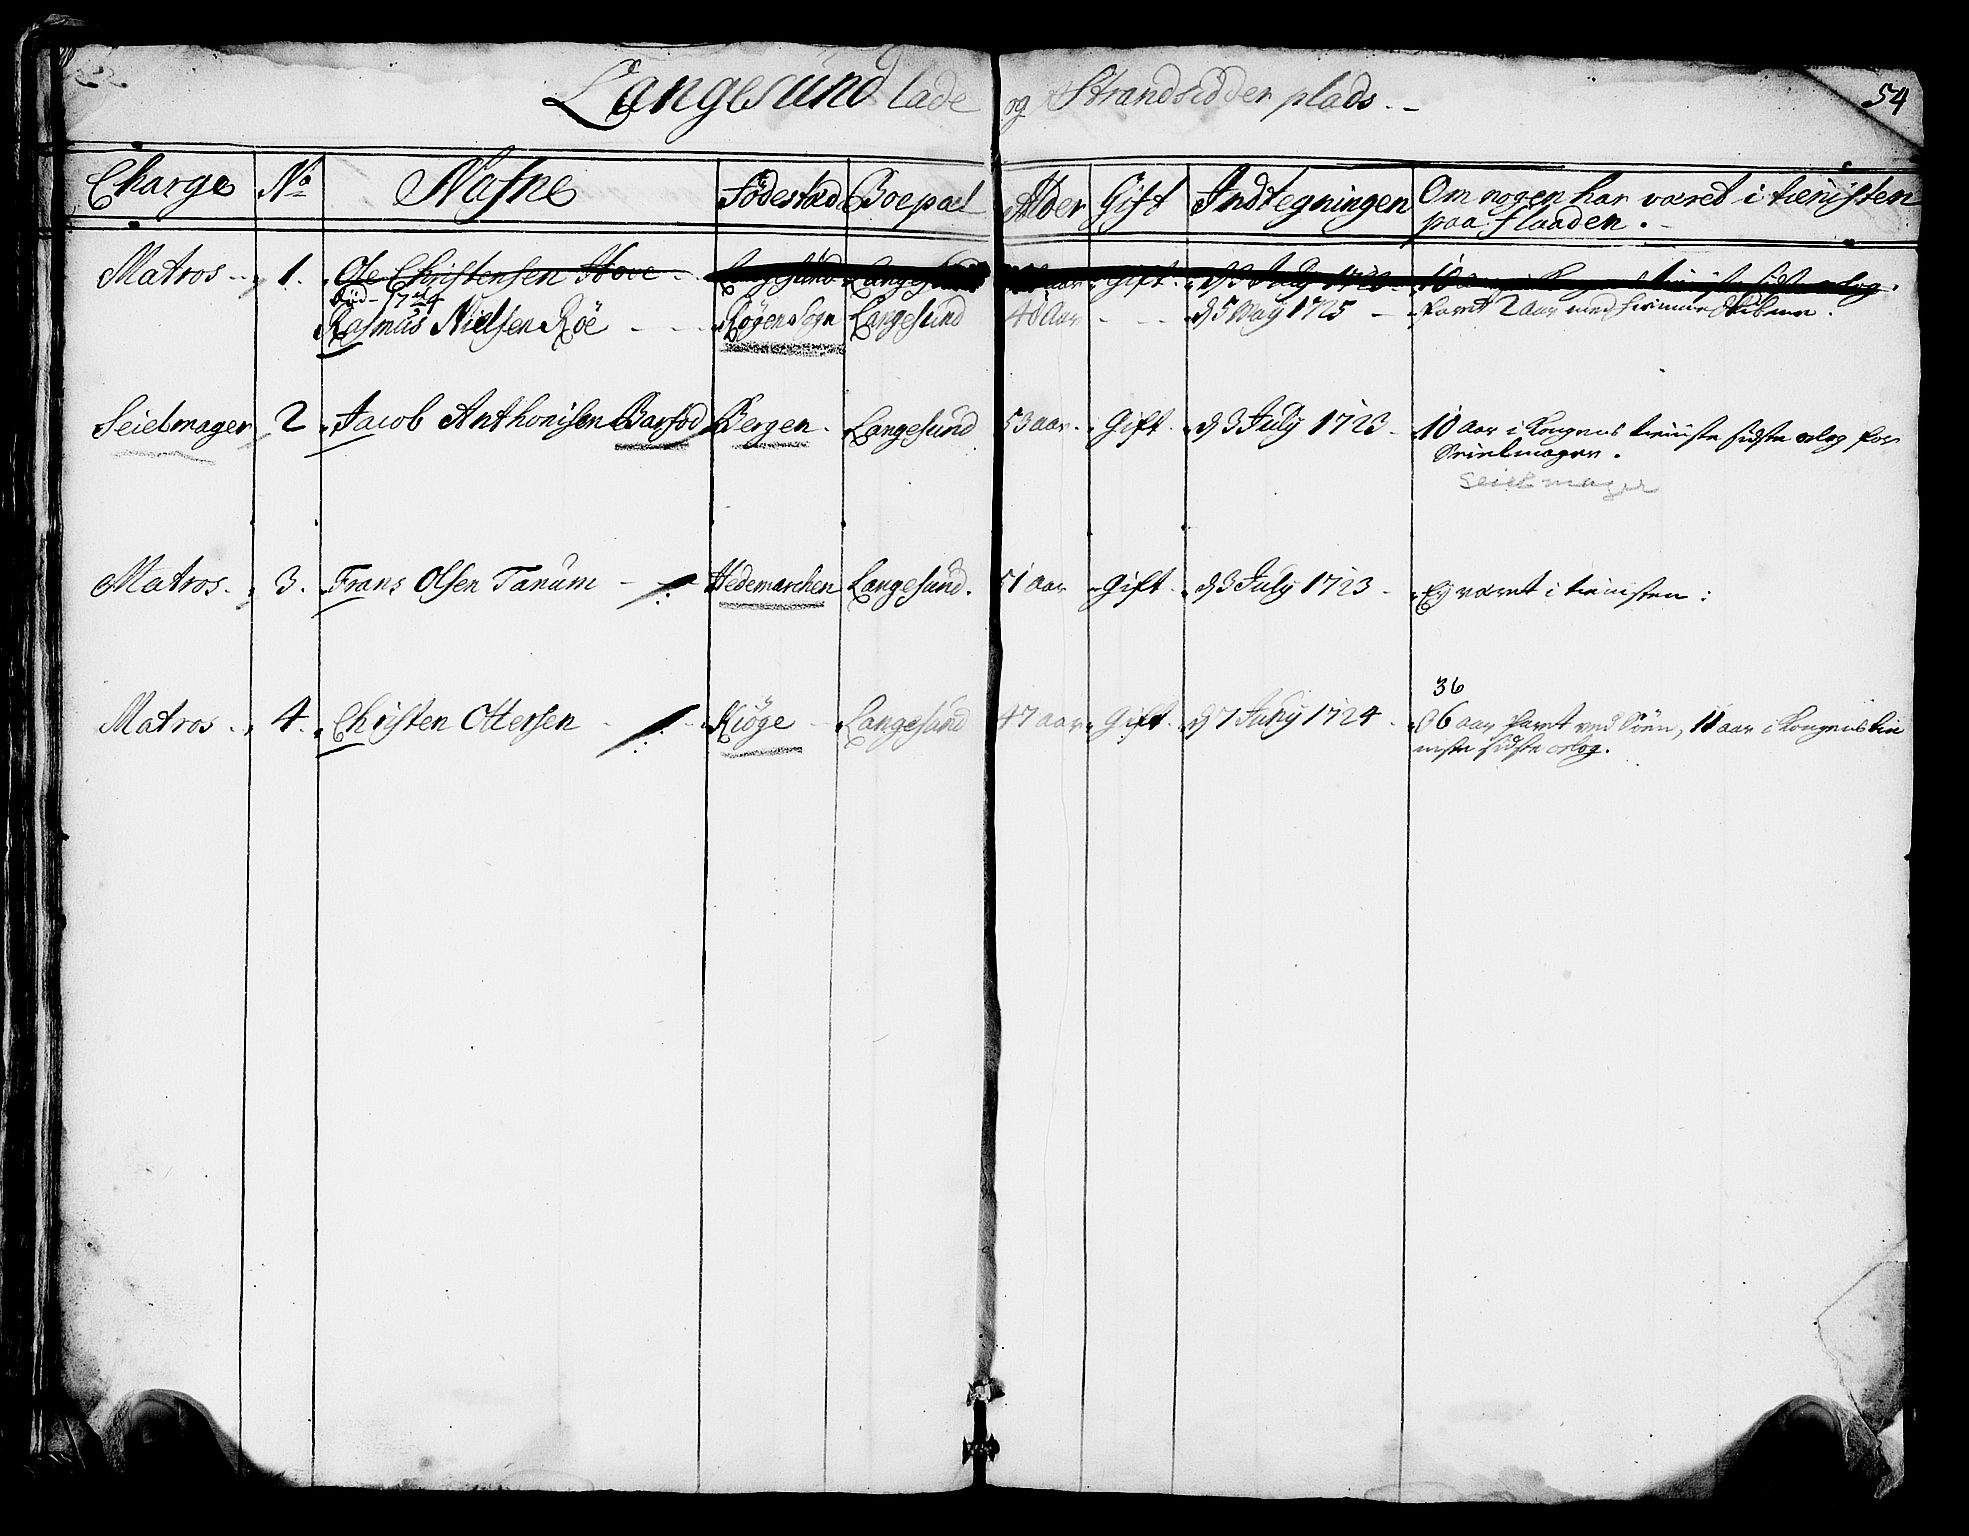 Langesund lade og Strandsidder plads.
54
Charge No Nafne Födestæd Boepæl Alder Gift Indtegningen Om nogen har været i tienisten
paa flaaden.
Matros 1. Ole Christensen Langesund Langesund Gift d 3 July 10
död 1724
Rasmus Nielsen Röe Rögen Sogn Langesund 40 Aar d 5 May 1725 faret 2 Aar med
Seielmager 2 Jacob Anthonisen Barfod Bergen Langesund 53 aar Gift d 3 July 1723 10 Aar i Kongens tieniste sidste orlog for
Seielmager.
Seielmager
Matros 3. Frans Olsen Tanum Hedemarchen Langesund. 51 aar Gift d 3 July 1723 Ey været i tienisten:
36
Matros 4. Christen Ottersen Kiöge Langesund 47 aar Gift d 7 July 1724 36 aar faret ved Söen, 11 aar i Kongens tie
niste sidste orlog.